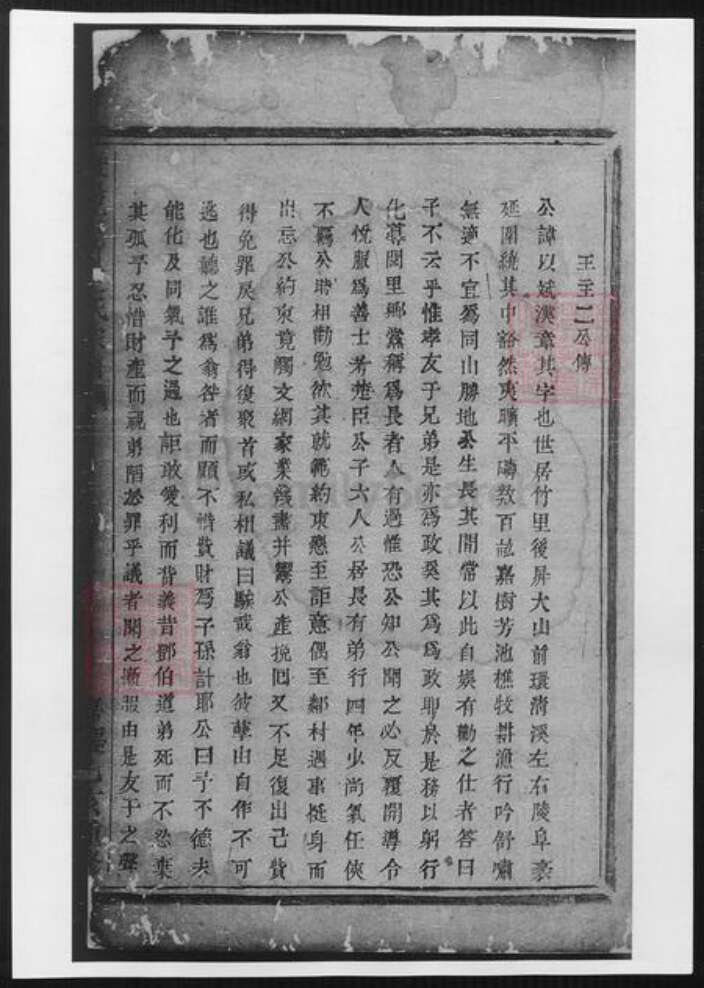 王主二公傳
公諱以斌漢章其字也世居竹里後屏大山前環清溪左右陵阜袤
延圍繞其中豁然爽曠平疇数百畝嘉樹芳池樵牧耕漁行吟舒嘯
無適不宜爲同山勝地公生長其間常以此自娯有勸之仕者答曰
子不云乎惟孝友于兄弟是亦爲政奚其爲爲政耶於是務以躬行
化募閭里鄉黨稱爲長者人有過惟恐公知公聞之必反覆開導令
人悅服爲善士考楚臣公子六人公居長有弟行四年少尚氣任俠
不羈公時相勸勉欲其就範約束懲至詎意偶至鄰村遇事挺身而
出忘公約束竟觸文網家業敓盡并鬻公產挽回又不足復出己貲
得免罪戾兄弟得復聚首或私相議曰駭哉翁也彼孽由自作不可
逭也聽之誰爲翁咎者而顧不惜貲財爲子孫計耶公曰予不德夫
能化及同氣予之過也詎敢愛利而背義昔鄧伯道弟死而不忍棄
其孤予忍惜財產而視弟陷於罪乎議者聞之慚赧由是友于之聲